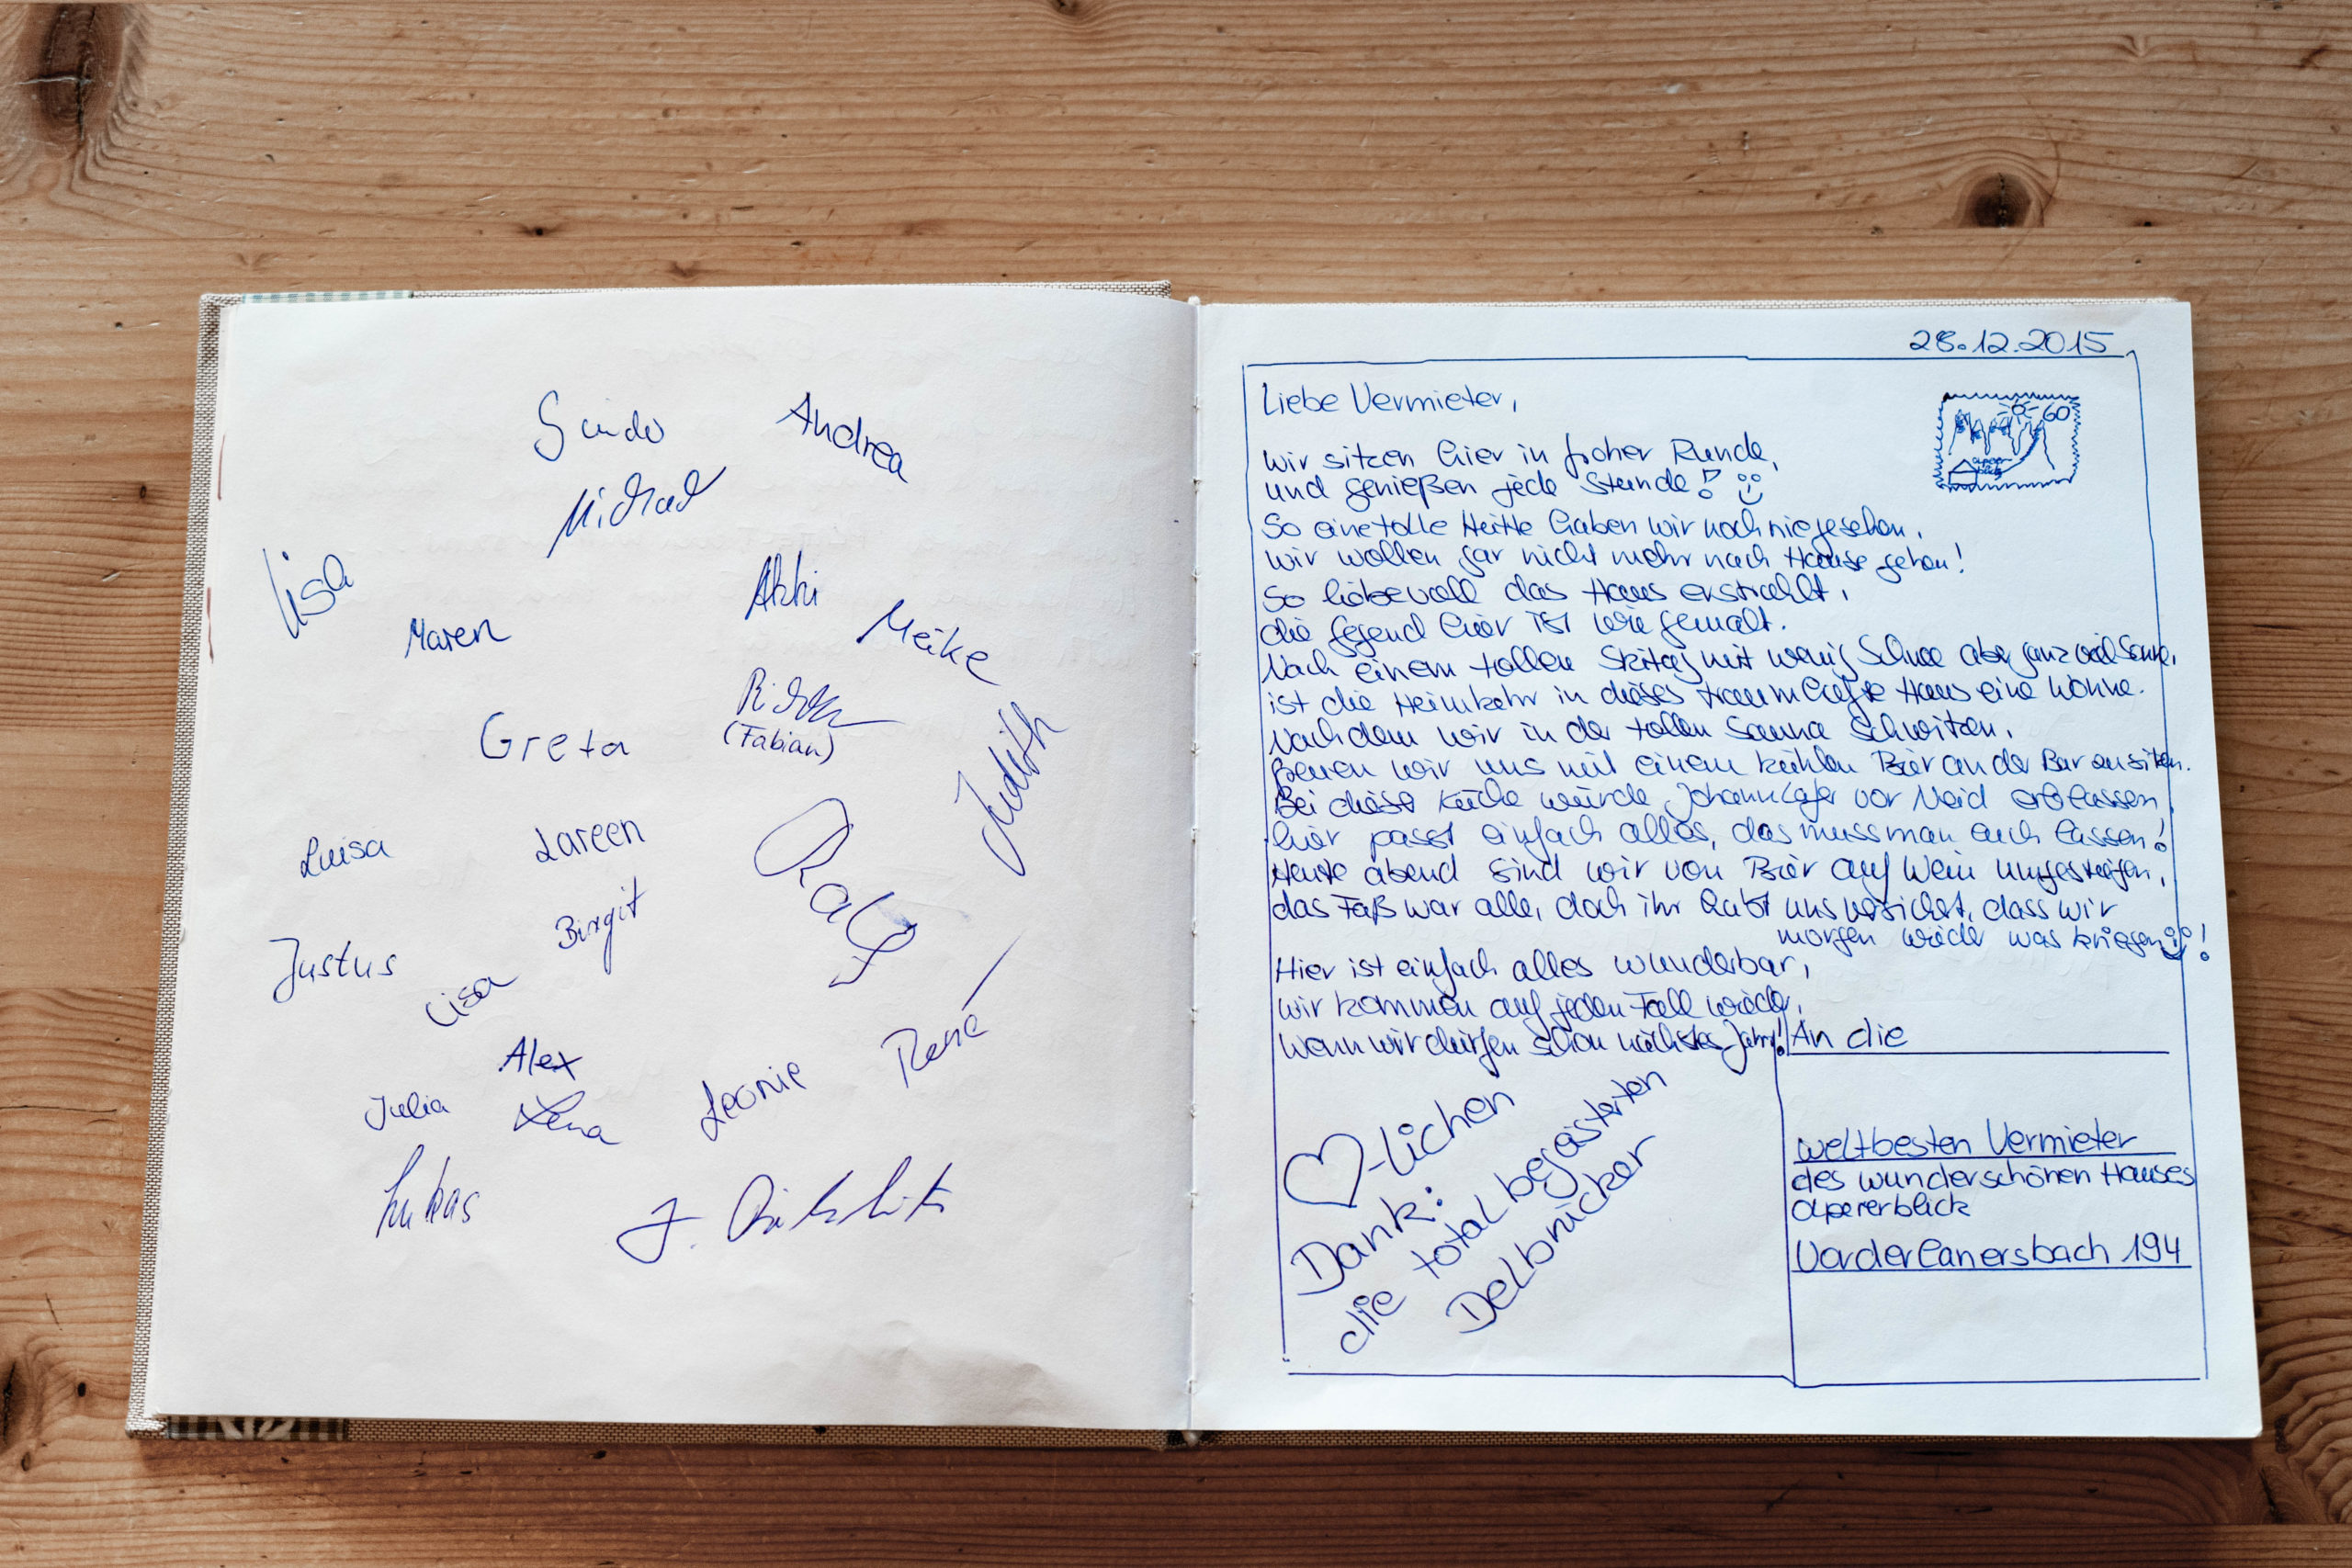 Guido
Andrea
Michael
Lisa
Akki
Maren
Meike
(Fabian)
Greta
Judith
Luisa
Lareen
Ralf
Birgit
Justus
Lisa
René
Alex
Julia
Lena
Leonie
Lukas
J.
28.12.2015
60
Liebe Vermieter,
wir sitzen hier in froher Runde,
und genießen jede Stunde!
So eine tolle Hütte haben wir noch nie gesehen,
wir wollen gar nicht mehr nach Hause gehen!
So liebevoll das Haus erstrahlt,
die Gegend hier ist wie gemalt.
Nach einem tollen Skitag mit wenig Schnee aber ganz viel Sonne,
ist die Heimkehr in dieses traumhafte Haus eine Wonne.
Nachdem wir in der tollen Sauna schwitzen,
freuen wir uns mit einem kühlen Bier an der Bar zu sitzen.
Bei dieser Küche würde Johann Lafer vor Neid erblassen,
hier passt einfach alles, das muss man euch lassen!
Heute abend sind wir von Bier auf Wein umgestiegen,
das Faß war alle, doch ihr habt uns versichert, dass wir
morgen wieder was kriegen!
Hier ist einfach alles wunderbar,
wir kommen auf jeden Fall wieder,
wenn wir dürfen schon nächstes Jahr!
♡-lichen
Dank:
die total begeisterten
Delbrücker
An die
weltbesten Vermieter
des wunderschönen Hauses
alpenerblick
Vorderlanersbach 194